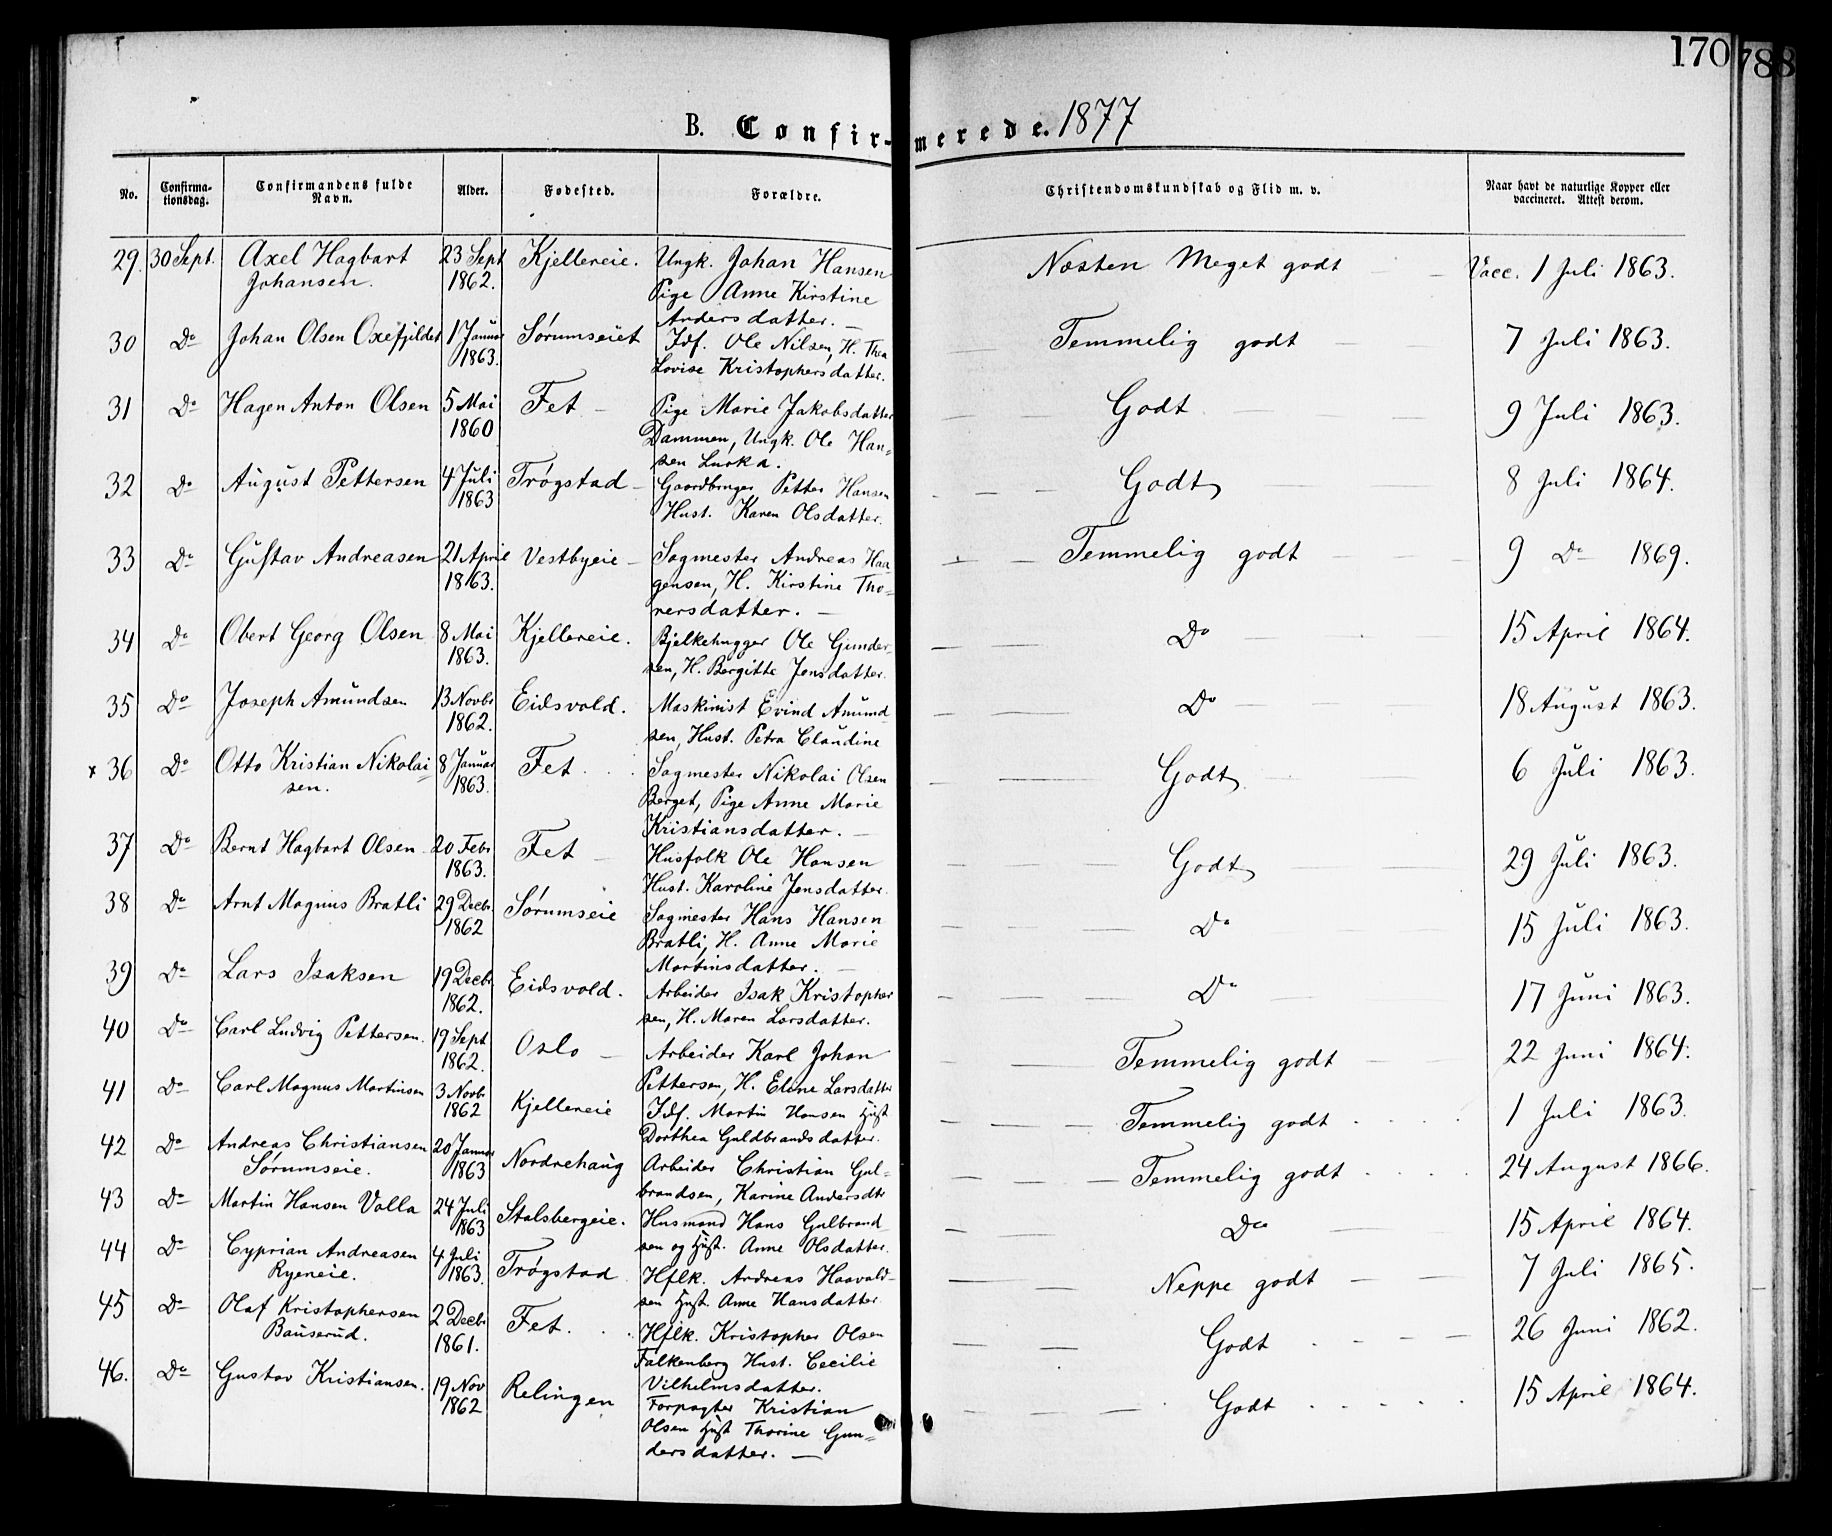 170
788
B. Confirmerede. 1877
No. Confirmationsdag. Confirmandens fulde Navn. Alder. Fødested. Forældre. Christendomskundskab og Flid m. v. Naar havt de naturlige Kopper eller vaccineret. Attest derom.
29. 30 Sept. Axel Hagbart 23 Sept Kjellereie. Ungk. Johan Hansen Næsten Meget godt Vacc. 1 Juli 1863.
Johansen. 1862. Pige Anne Kirstine
Andersdatter.
30 Do Johan Olsen Oxefjildet 1 Januar Sørumseiet Idf. Ole Nilsen, H. Thea Temmelig godt 7 Juli 1863.
1863. Lovise Kristophersdatter.
31 Do Hagen Anton Olsen 5 Mai Fet Pige Marie Jakobsdatter Godt 9 Juli 1863.
1860 Dammen, Ungk. Ole Han=
sen Lurka.
32 Do August Pettersen 4 Juli Trøgstad Gaardbruger Petter Hansen Godt 8 Juli 1864.
1863 Hust. Karen Olsdatter.
33 Do Gustav Andreasen 21 April Vestbyeie Sagmester Andreas Haa Temmelig godt 9 Do 1869.
1863. gensen, H. Kirstine Tho=
rersdatter.
34 Do Obert Georg Olsen 8 Mai Kjellereie. Bjelkehugger Ole Gunder Do 15 April 1864.
1863. sen, H. Bergitte Jensdatter.
35 Do Joseph Amundsen 13 Novbr Eidsvold. Maskinist Evind Amund Do 18 August 1863.
1862. sen, Hust. Petra Claudine
x 36 Do Otto Kristian Nikolai= 8 Januar Fet. Sagmester Nikolai Olsen Godt 6 Juli 1863.
sen. 1863. Berget, Pige Anne Marie
Kristiansdatter.
37 Do Bernt Hagbart Olsen 20 Febr Fet Husfolk Ole Hansen Godt 29 Juli 1863.
1863. Hust. Karoline Jensdatter.
38 Do Arnt Magnus Bratli 29 Decbr. Sørumseie Sagmester Hans Hansen Do 15 Juli 1863.
1862 Bratli, H. Anne Marie
Martinsdatter.
39 Do Lars Isaksen 19 Decbr Eidsvold. Arbeider Isak Kristopher Do 17 Juni 1863.
1862. sen, H. Maren Larsdatter.
40 Do Carl Ludvig Pettersen. 19 Sept Oslo Arbeider Karl Johan Temmelig godt 22 Juni 1864.
1862. Pettersen, H. Elene Larsdatter
41 Do Carl Magnus Martinsen 3 Novbr Kjellereie Idf. Martin Hansen Hust Temmelig godt 1 Juli 1863.
1862 Dorthea Guldbrandsdatter.
42 Do Andreas Christiansen 20 Januar Nordrehaug Arbeider Christian Gul= Temmelig godt 24 August 1866.
Sørumseie. 1863 brandsen, Karine Andersdtr
43 Do Martin Hansen Valla 24 Juli Stalsbergeie. Husmand Hans Gulbrand Do 15 April 1864.
1863 sen og Hust. Anne Olsdatter.
44 Do Cyprian Andreasen 4 Juli Trøgstad Hflk. Andreas Haavald= Neppe godt 7 Juli 1865.
Ryeneie. 1863. sen Hust. Anne Hansdatter
45 Do Olaf Kristophersen 2 Decbr Fet. Hflk. Kristopher Olsen Godt 26 Juni 1862.
Bauserud. 1861. Falkenberg Hust. Cecilie
Vilhelmsdatter.
46. Do Gustav Kristiansen. 19 Nov Relingen Forpagter Kristian Godt 15 April 1864.
1862 Olsen Hust Thorine Gun=
dersdatter.